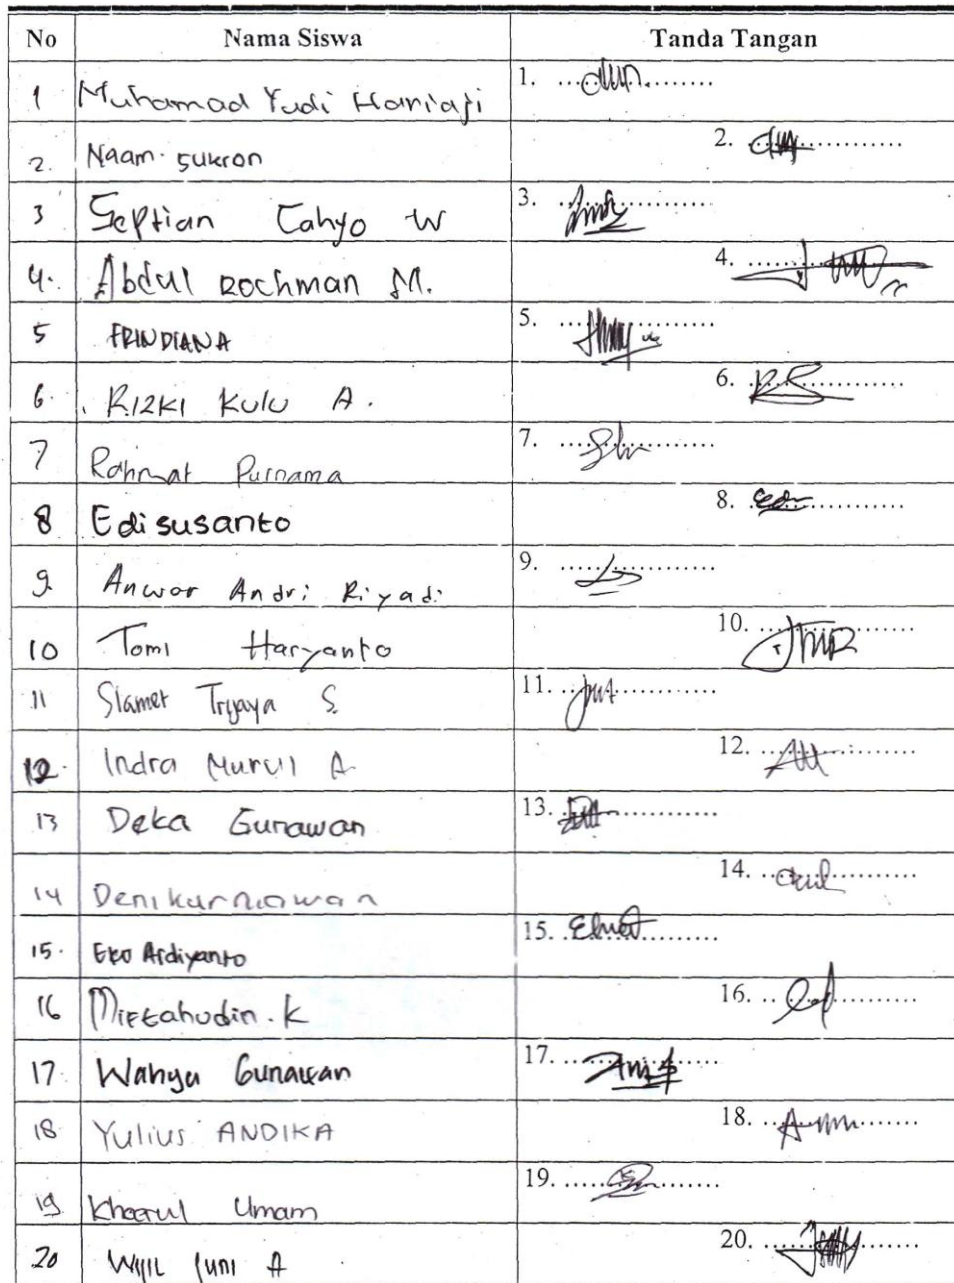 No Nama Siswa Tanda Tangan
1 Muhamad Yudi Hariaji 1.
2. Naam. sukron 2.
3 Septian Cahyo W 3.
4. Abdul Rochman M. 4.
5 FRINDIANA 5.
6. Rizki Kulu A. 6.
7 Rahmat Purnama 7.
8 Edi susanto 8.
9. Anwar Andri Riyadi 9.
10 Tomi Haryanto 10.
11 Slamet Tryaya S. 11.
12. Indra Nurul A 12.
13 Deka Gunawan 13.
14 Deni kurniawan 14.
15. Eko Ardiyanto 15.
16 Miftahudin. K 16.
17. Wahyu Gunawan 17.
18 Yulius ANDIKA 18.
19 Khaerul Umam 19.
20 Wijil Juni A 20.